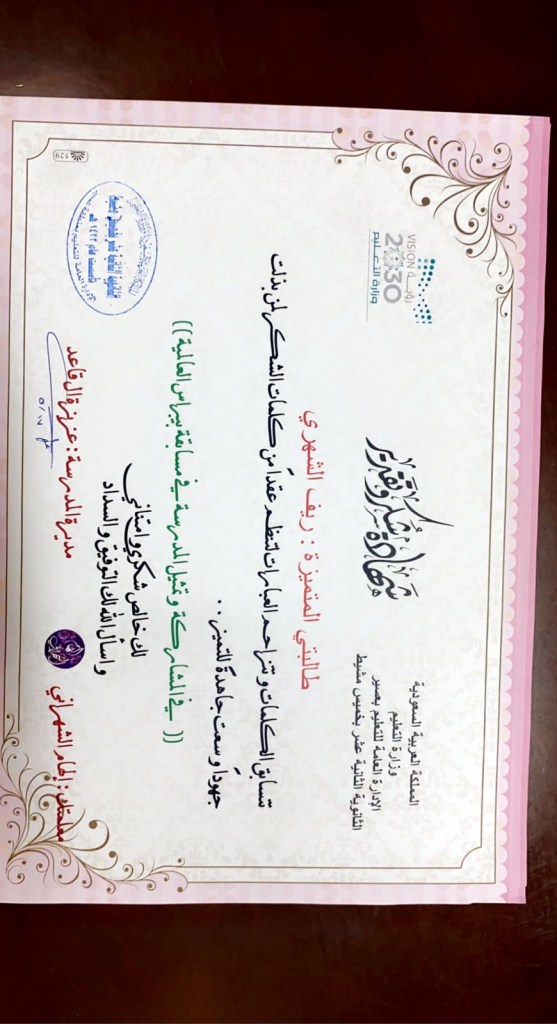 المملكة العربية السعودية
وزارة التعليم
الإدارة العامة للتعليم بعسير
الثانوية الثانية عشر بخميس مشيط
VISION رؤية
2030
وزارة التعليم
شهادة شكر وتقدير
طالبتي المتميزة : ريف الشهري
تتسابق الكلمات وتتزاحم العبارات لتنظم عقداً من كلمات الشكر لمن بذلت
جهوداً وسعت جاهدة للتميز . .
(( في المشاركة وتمثيل المدرسة في مسابقة بيبراس العالمية ))
لك خالص شكري وامتناني
واسأل الله لك التوفيق والسداد
معلمتك : إلهام الشهراني
مديرة المدرسة : عزيزة آل قاعد
529